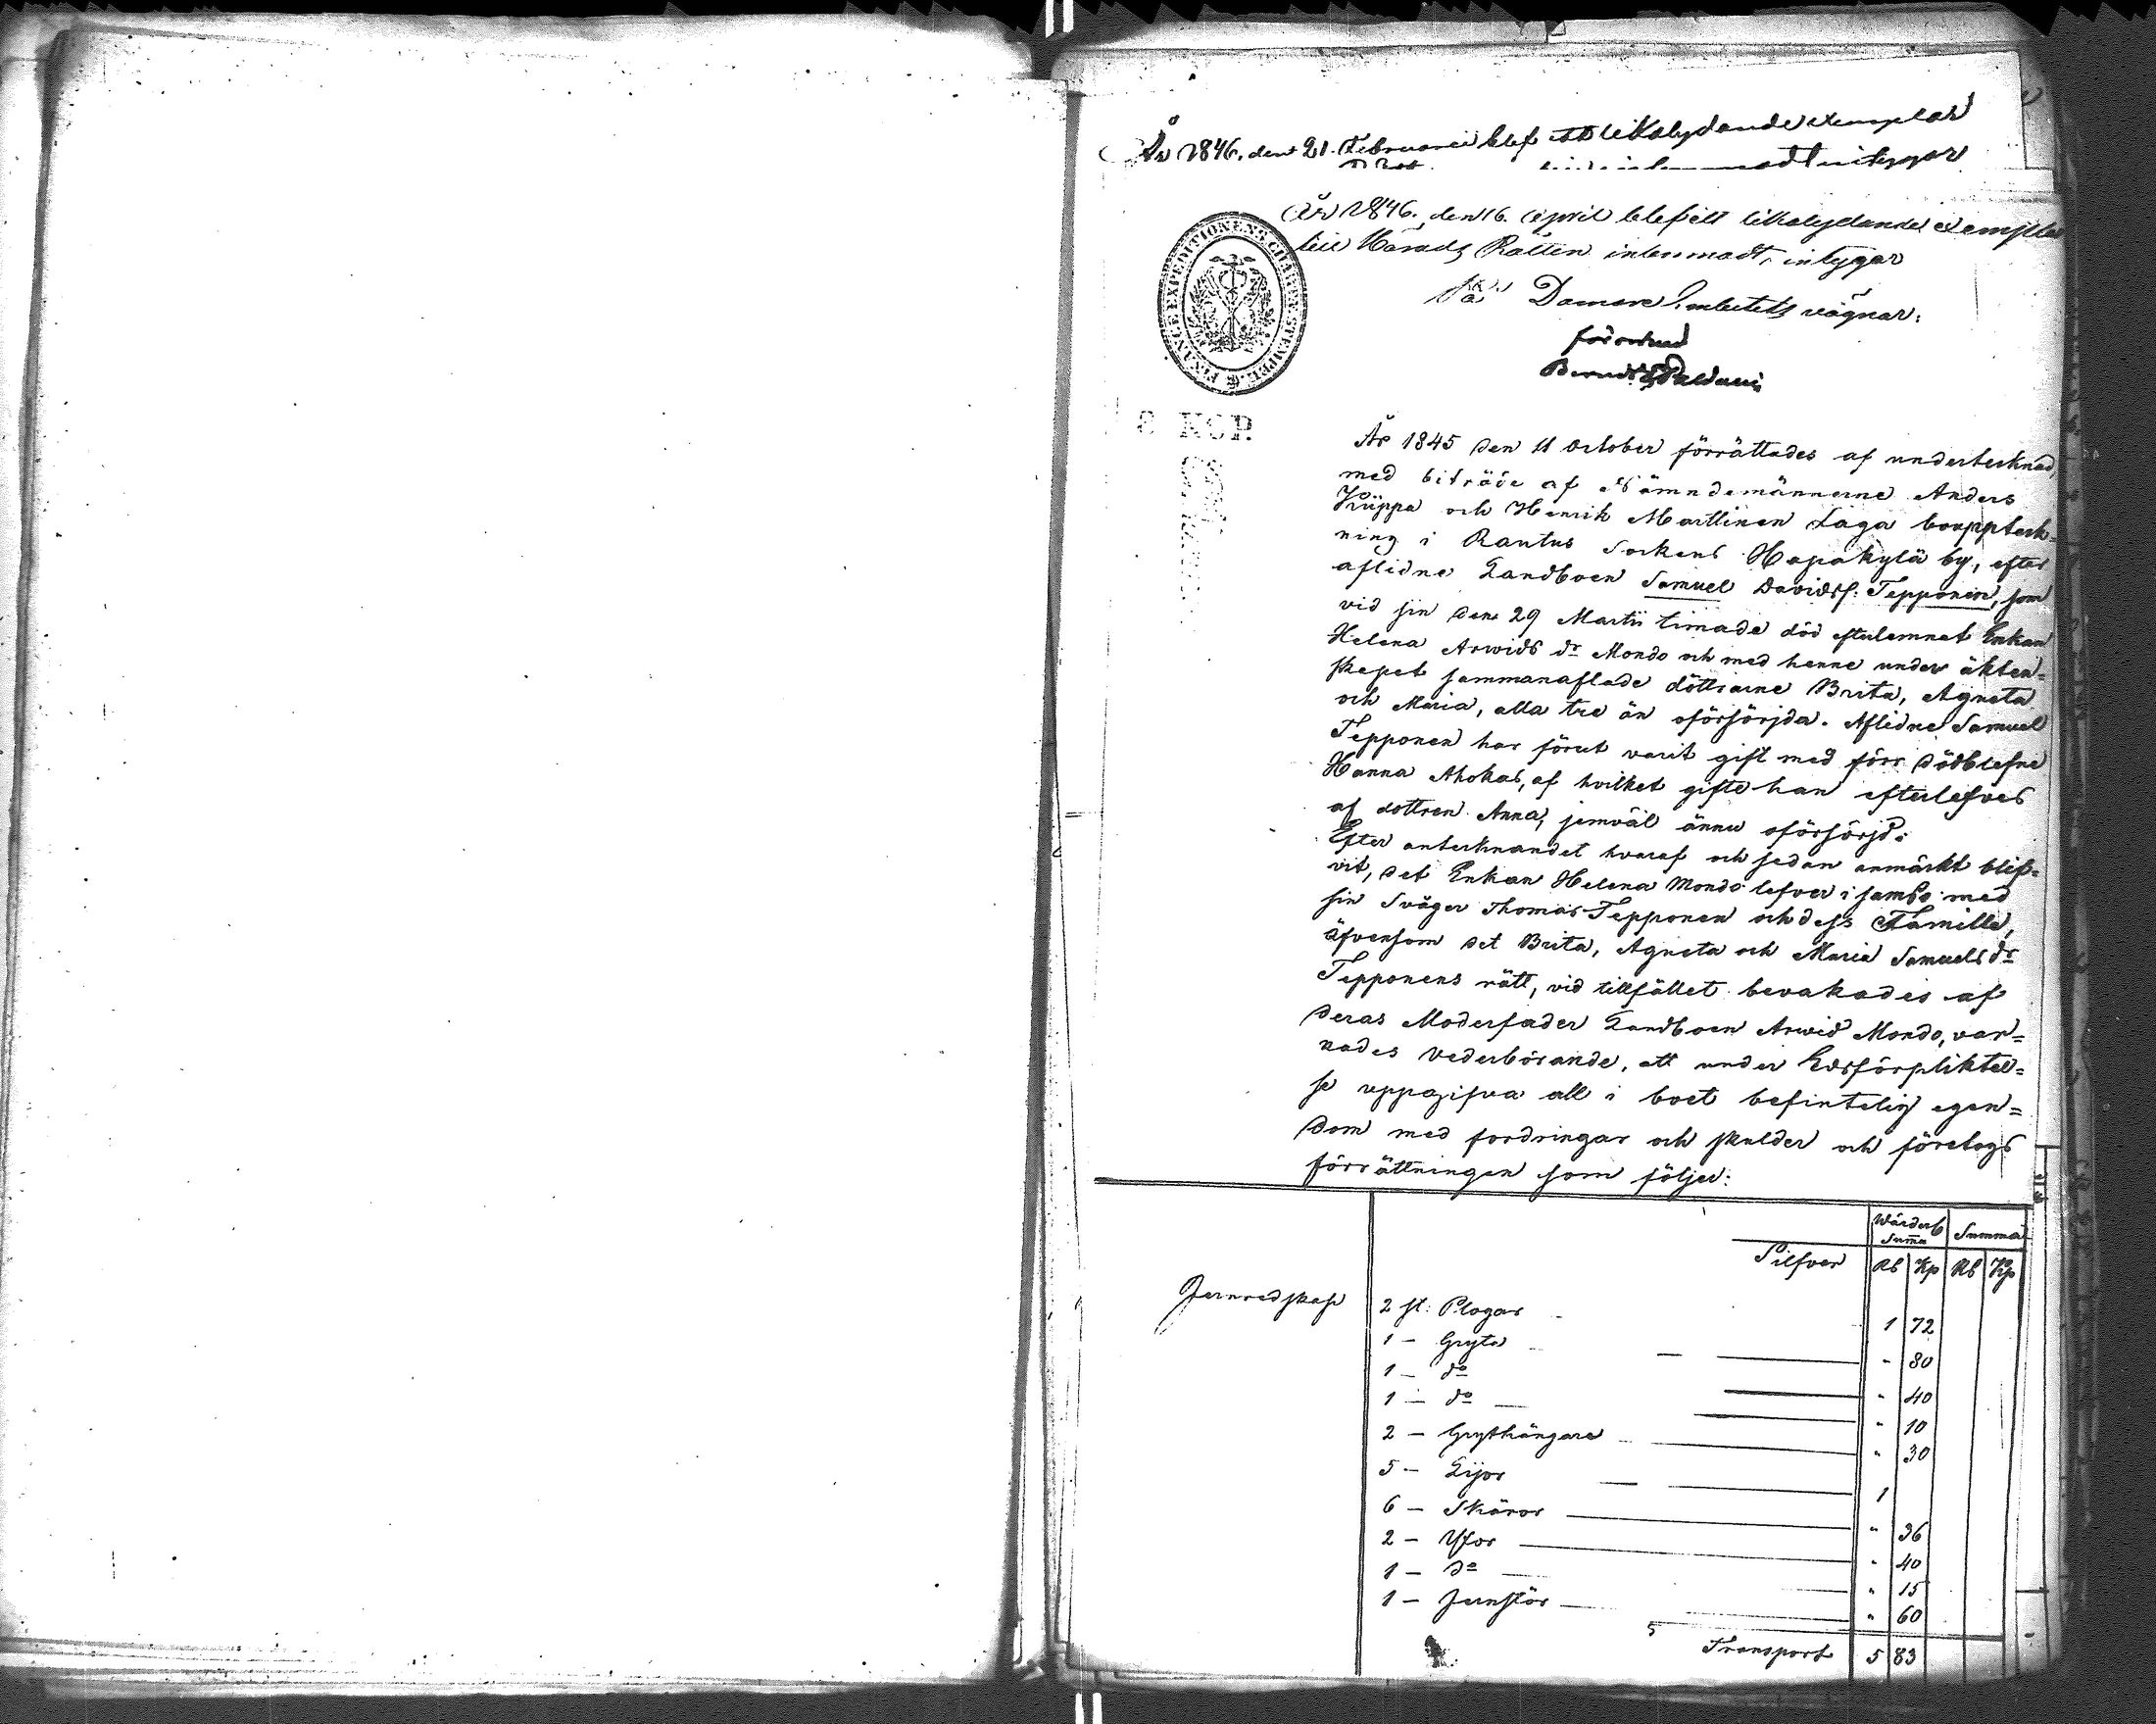 År 1846. den 21. Februarii blef ett likalydande exemplar
År 1846. den 16. April blef ett likalydande exemplar
till Härads Rätten inlemnadt, intygar
På Domare Embetets vägnar:
förordnad
FINANCE EXPEDITIONENS CHARTÆ STEMPEL
8 KOP.
År 1845 den 11 October förrättades af undertecknad,
med biträde af Nämndemännerne Anders
Kiippa och Henrik Marttinen Laga bouppteck-
ning i Rautus Sockens Hapakylä by, efter
aflidne Landboen Samuel Davidss. Tepponen, som
vid sin den 29 Martii timade död efterlemnat Enkan
Helena Arwids dr Mondo och med henne under ökten-
skapet sammanaflade döttrarne Brita, Agneta
och Maria, alla tre än oförsörjda. Aflidne Samuel
Tepponen har förut varit gift med förr dödblefne
Hanna Ahokas, af hvilket gifte han efterlefves
af dottren Anna, jemväl ännu oförsörjd.
Efter antecknandet hvaraf och sedan anmärkt blif-
vit, det Enkan Helena Mondo lefver i sambo med
sin Svåger Thomas Tepponen och dess Famille,
äfvensom det Brita, Agneta och Maria Samuels dr
Tepponens rätt, vid tillfället bevakades af
deras Moderfader Landboen Arwid Mondo, var-
nades vederbörande, att under Edsförpliktel-
se uppgifva all i boet befintelig egen-
dom med fordringar och skulder och företogs
förrättningen som följer:
Wärder Summa Summa
Silfver Rb Kp Rb Kp
Jernredskap 2 st: Plogar 1 72
1 — Gryta " 80
1 — do " 40
1 — do " 10
2 — Grythängare " 30
5 — Lijor 1
6 — Skäror " 36
2 — Yxor " 40
1 — do " 15
1 — Jernstör " 60
Transport 5 83